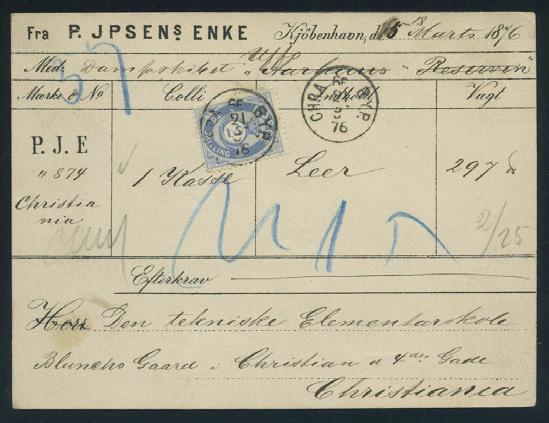 Fra P. JPSENS ENKE Kjöbenhavn, d. 15 18 Marts 1876
Med Dampskibet "Aarhuus" "Reserven"
Mærke & No Colli Indhold Vægt
P. J. E
" 874
Christia
nia
1 Kasse Leer 297 ℔
2/25
SKILLING
BYP.
21
3
76
CHRA BYP.
3
76
Efterkrav
Herr Den tekniske Elementarskole
Gaard i Christian d 4des Gade
Christiania